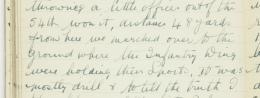 throwing a little officer out of the
54th won it, distance 48 yards
from here we marched over to the
ground where the Infantry Wing
were holding their Sports, it was
mostly drill & to tell the truth I